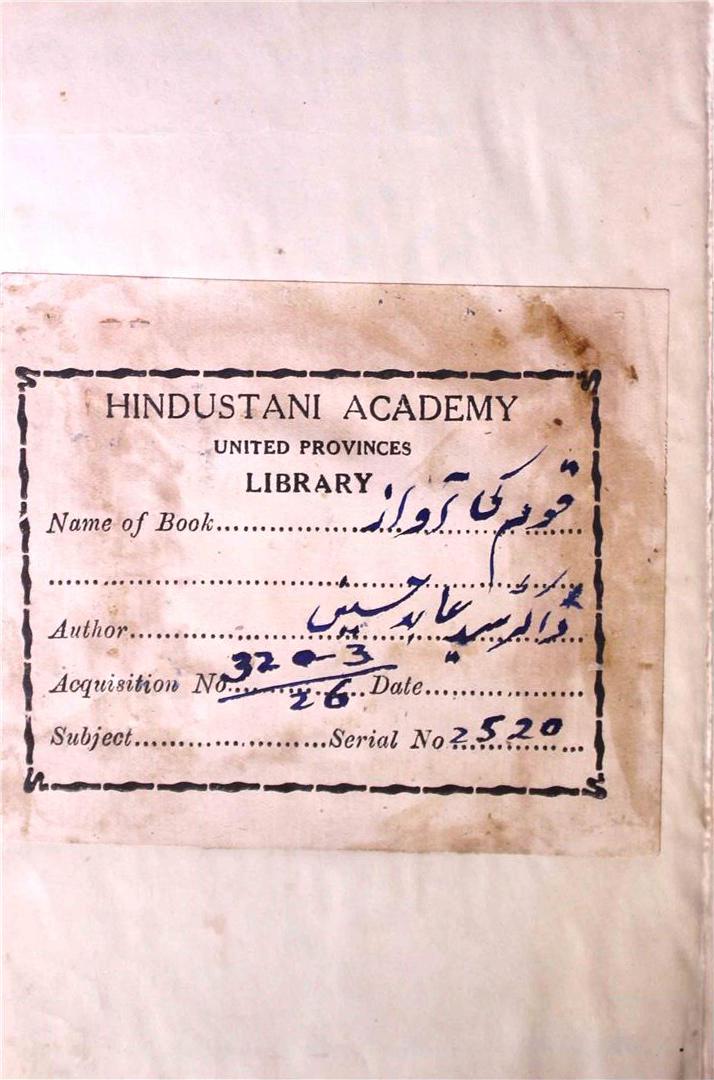 HINDUSTANI ACADEMY
UNITED PROVINCES
LIBRARY
Name of Book................قوم کی آواز
Author................ڈاکٹر سید عابد حسین
Acquisition No. 320-3/26 Date................
Subject......................Serial No 2520